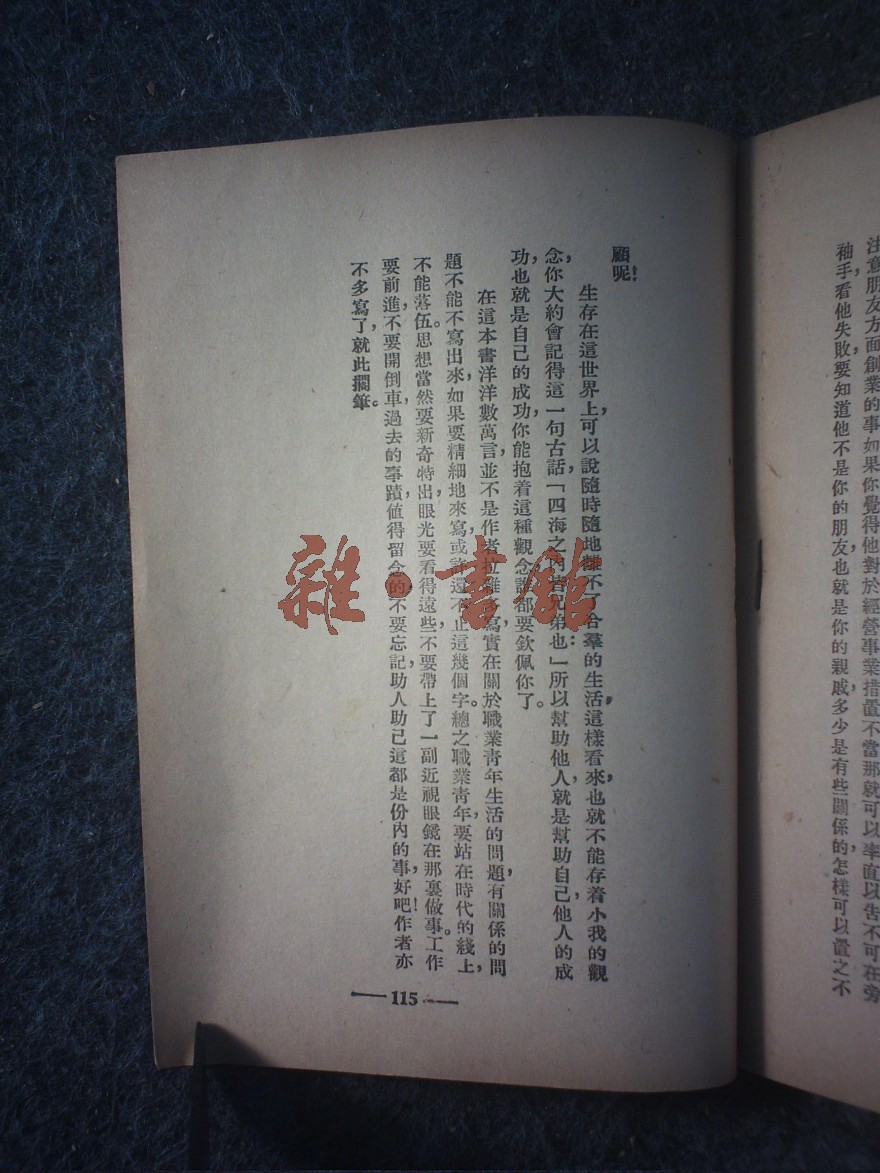 注意朋友方面創業的事如果你覺得他對於經營事業措置不當那就可以率直以告不可在旁
袖手看他失敗，要知道他不是你的朋友，也就是你的親戚，多少是有些關係的，怎樣可以置之不
顧呢！
生存在這世界上，可以說隨時隨地離不了合羣的生活，這樣看來，也就不能存着小我的觀
念，你大約會記得這一句古話，「四海之內皆兄弟也：」所以幫助他人，就是幫助自己，他人的成
功，也就是自己的成功，你能抱着這種觀念，誰都要欽佩你了。
在這本書洋洋數萬言，並不是作者拉雜多寫，實在關於職業青年生活的問題，有關係的問
題，不能不寫出來，如果要精細地來寫，或許還不止這幾個字。總之，職業青年要站在時代的綫上，
不能落伍。思想當然要新奇特出，眼光要看得遠些，不要帶上了一副近視眼鏡在那裏做事。工作
要前進，不要開倒車，過去的事蹟，值得留念的，不要忘記，助人助己，這都是份內的事，好吧！作者亦
不多寫了，就此擱筆。
115
雜·書館